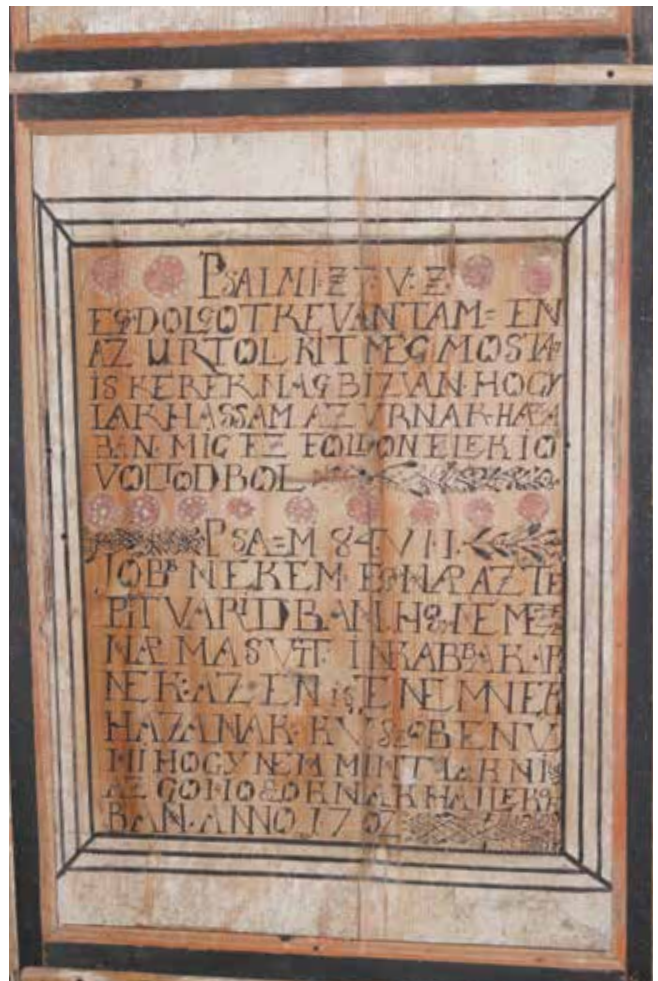 PSALMI: Z7: V: Z:
EG DOLGOT KEVANTAM= EN
AZ URTOL KIT MEG MOSTA=
IS KEREK NAG BIZVAN· HOGY
LAKHASSAM AZ VRNAK· HAZA
BAN· MIG EZ FOLDON ELEK IO
VOLTODBOL
PSA=M 84: VII·
JOBB NEKEM EG NAP AZ TE
PITVARIDBAN· HOG IEM EZER
NAP MASUTT· INKAB AKAR
NEK· AZ· EN ISTENEMNEK
HAZANAK· KVSZOBEN V
HOGY NEM MINT LAKNI
AZ GONOSZOKNAK HAILEKO
BAN· ANNO 1707